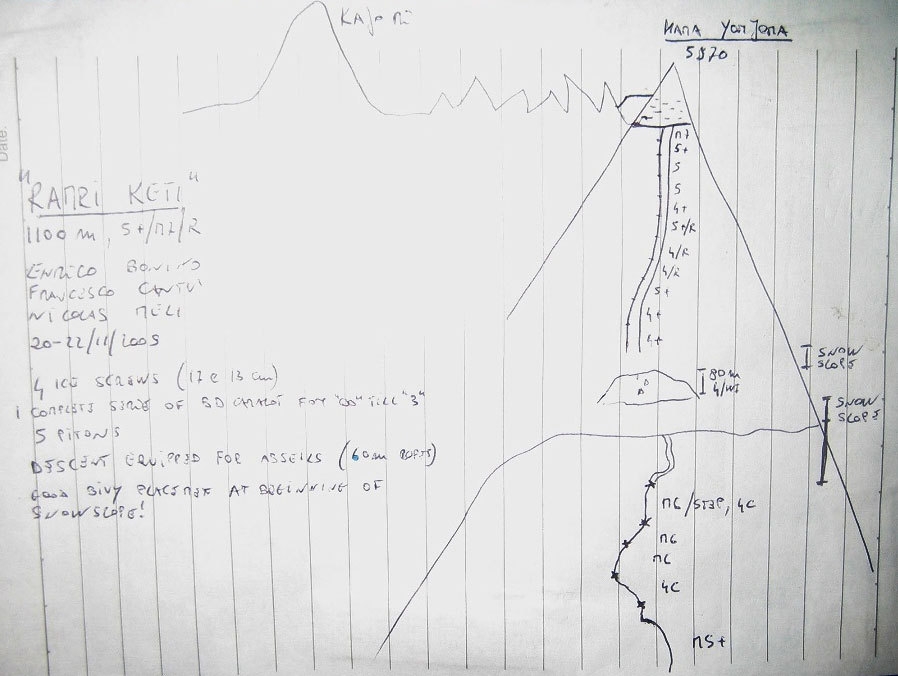 Date:
KAJORI
MAMA YONJOMA
5970
"RAMRI KETI"
1100 m, 5+/M7/R
ENRICO BONINO
FRANCESCO CANTU'
NICOLAS MELI
20-22/11/2005
4 ICE SCREWS (17 e 13 cm)
1 COMPLETE SERIE OF BD CAMALOT FROM "00" TILL "3"
5 PITONS
DESCENT EQUIPPED FOR ABSEILS (60m ROPES)
GOOD BIVY PLACEMENT AT BEGINNING OF
SNOW SLOPE!
M7
5+
5
5
4+
5+/R
4/R
4/R
5+
4+
4+
SNOW
SLOPE
80m
4/WI
SNOW
SLOPE
M6/STEP, 4C
M6
M6
4C
M5+